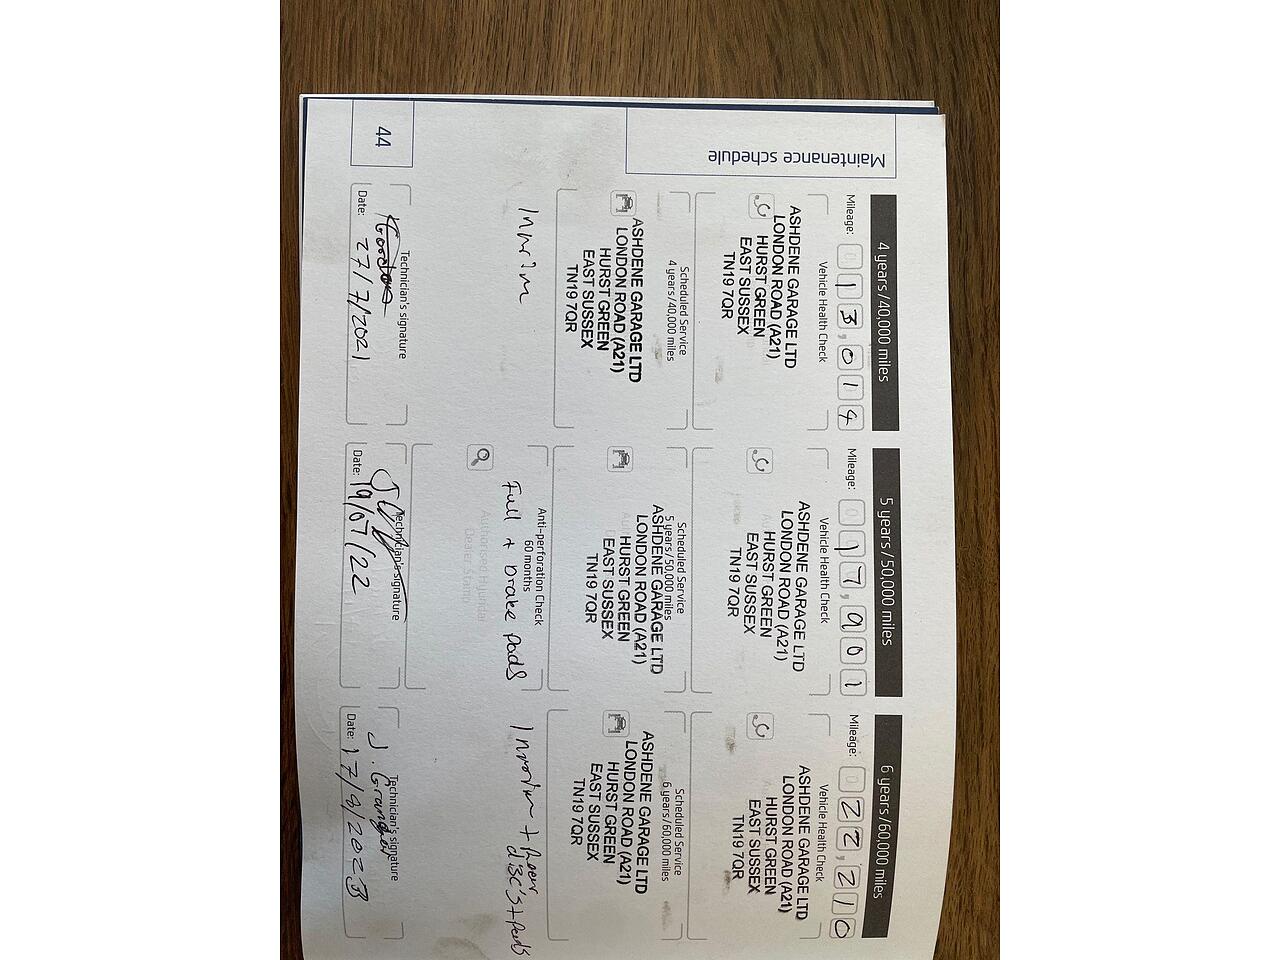 Maintenance schedule
4 years/40,000 miles
Mileage: 0 1 3 , 0 1 4
Vehicle Health Check
ASHDENE GARAGE LTD
LONDON ROAD (A21)
HURST GREEN
EAST SUSSEX
TN19 7QR
Scheduled Service
4 years/40,000 miles
ASHDENE GARAGE LTD
LONDON ROAD (A21)
HURST GREEN
EAST SUSSEX
TN19 7QR
Technician's signature
Date: 27/7/2021
5 years/50,000 miles
Mileage: 0 1 7 , 9 0 1
Vehicle Health Check
ASHDENE GARAGE LTD
LONDON ROAD (A21)
HURST GREEN
EAST SUSSEX
TN19 7QR
Scheduled Service
5 years/50,000 miles
ASHDENE GARAGE LTD
LONDON ROAD (A21)
HURST GREEN
EAST SUSSEX
TN19 7QR
Anti-perforation Check
60 months
Full + brake pads
Authorised Hyundai
Dealer Stamp
Technician's signature
Date: 19/07/22
6 years/60,000 miles
Mileage: 0 2 2 , 2 1 0
Vehicle Health Check
ASHDENE GARAGE LTD
LONDON ROAD (A21)
HURST GREEN
EAST SUSSEX
TN19 7QR
Scheduled Service
6 years/60,000 miles
ASHDENE GARAGE LTD
LONDON ROAD (A21)
HURST GREEN
EAST SUSSEX
TN19 7QR
Technician's signature
J. Granger
Date:
44